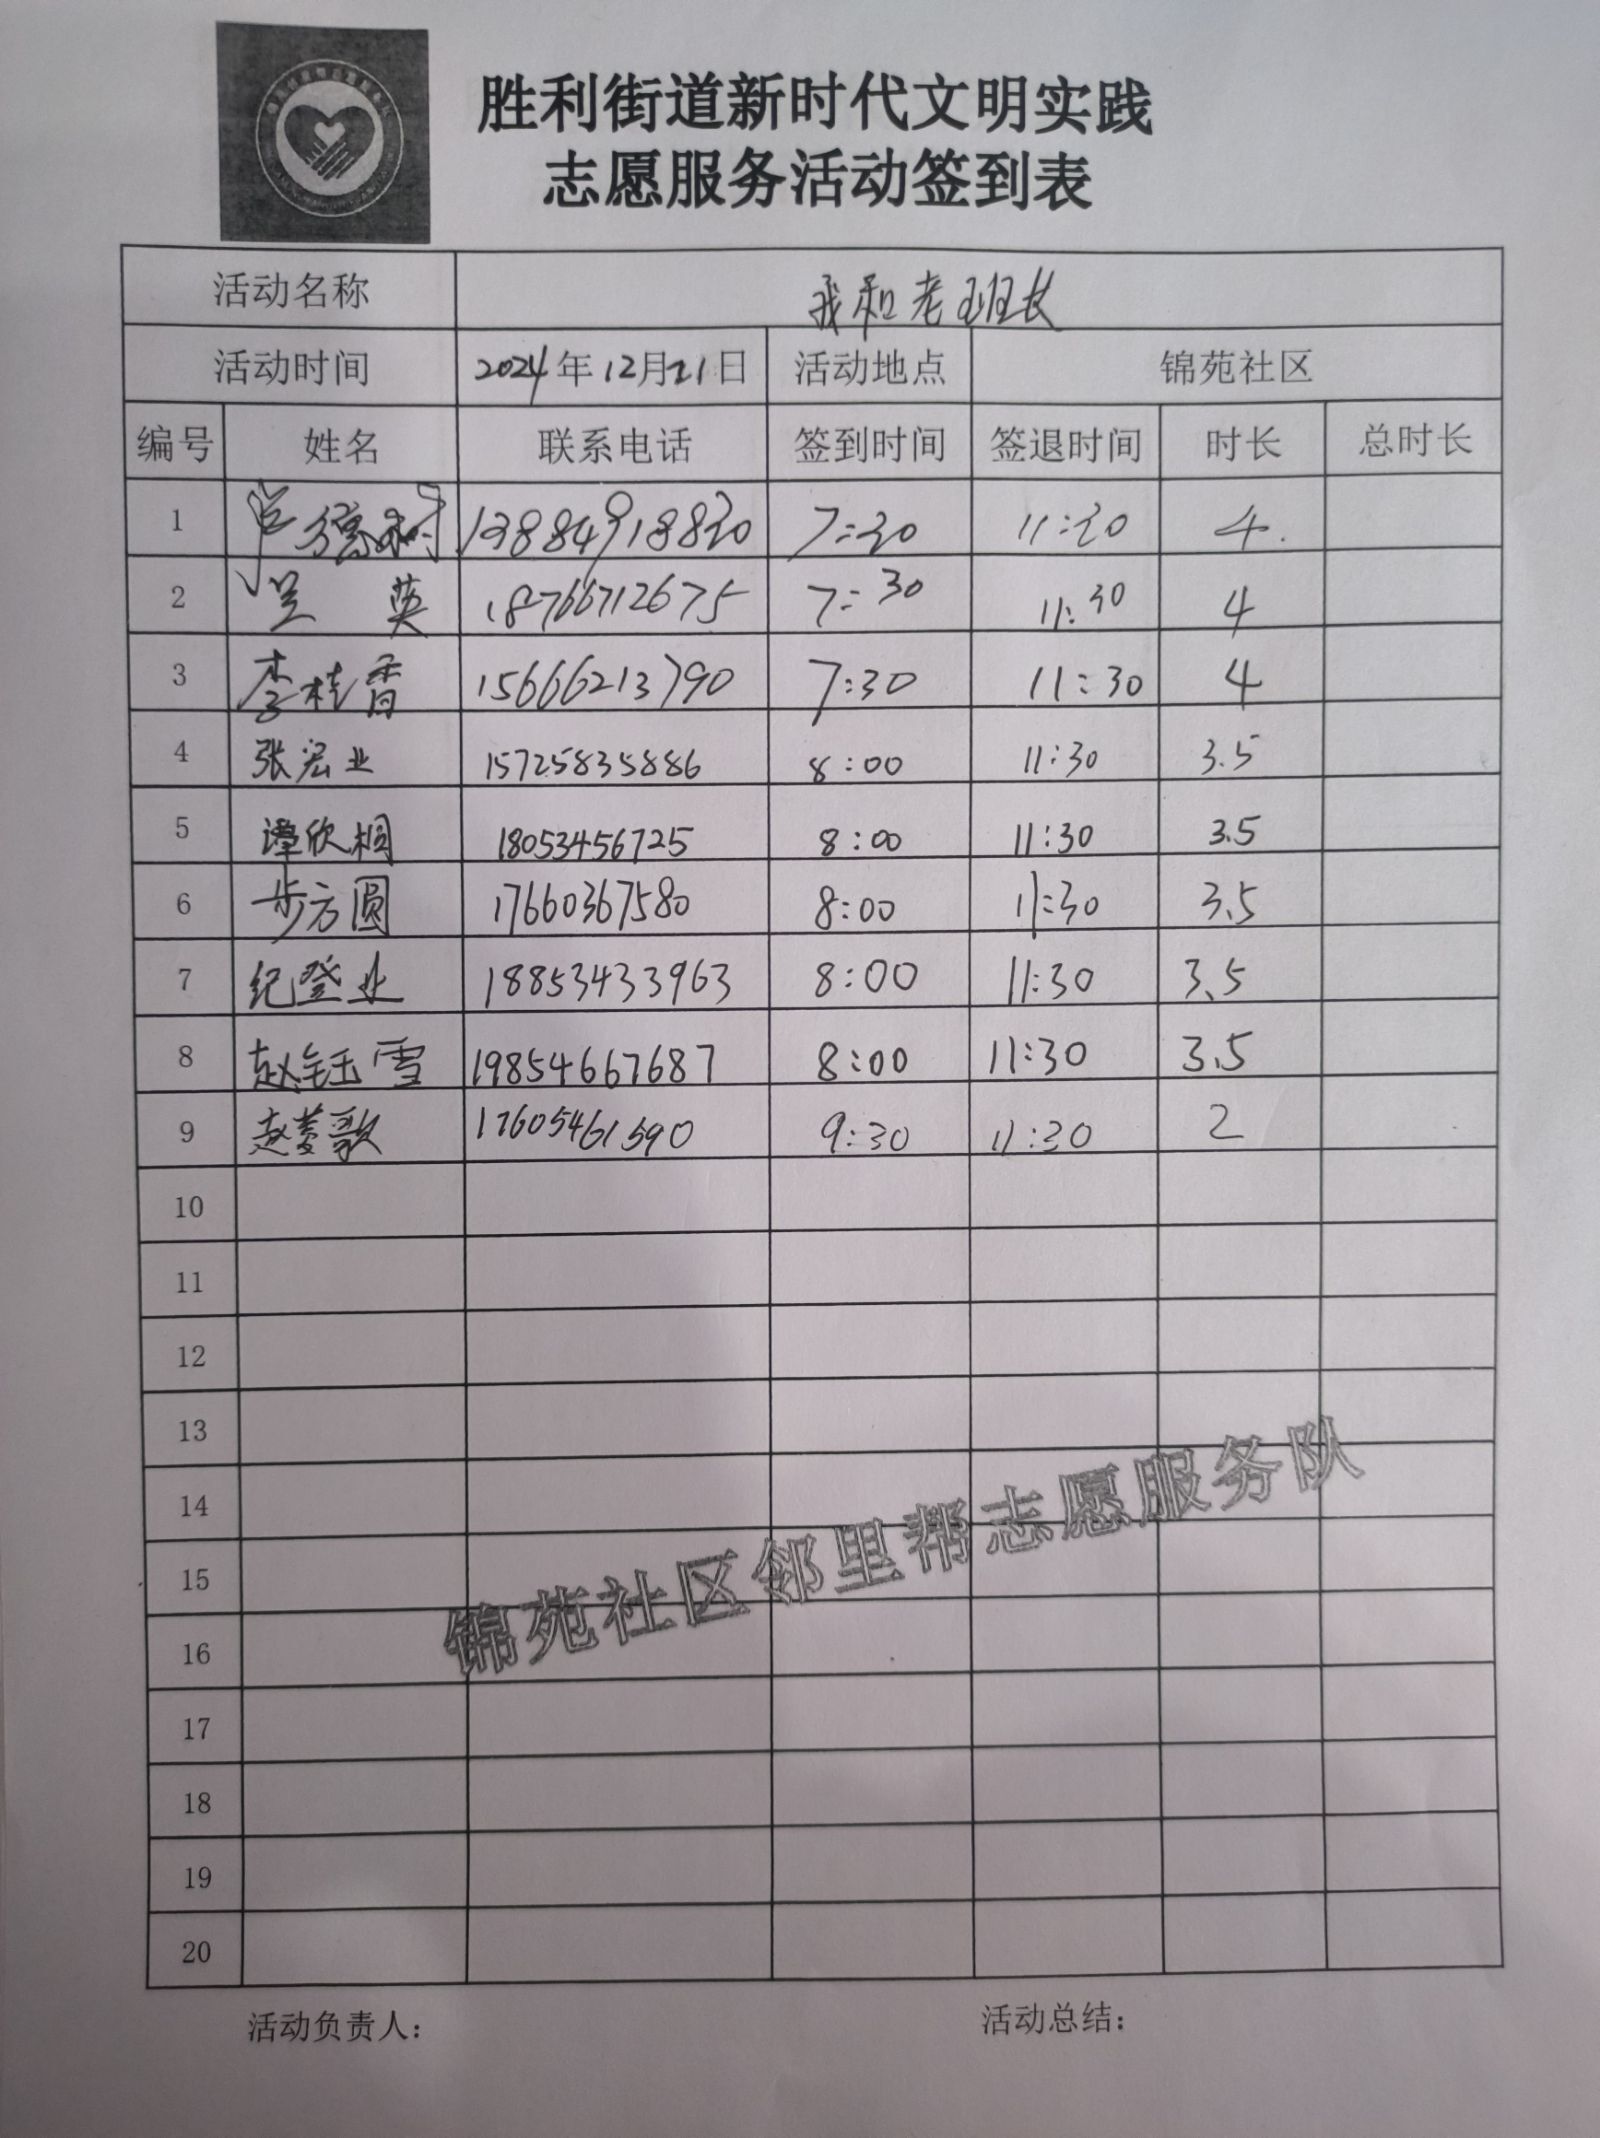 胜利街道新时代文明实践
志愿服务活动签到表
活动名称 我和老班长
活动时间 2024年12月21日 活动地点 锦苑社区
编号 姓名 联系电话 签到时间 签退时间 时长 总时长
1 13884918830 7:30 11:30 4.
2 吴英 18766712675 7:30 11:30 4
3 李桂香 15666213790 7:30 11:30 4
4 张宏业 15725835886 8:00 11:30 3.5
5 谭欣桐 18053456725 8:00 11:30 3.5
6 步方圆 17660367580 8:00 11:30 3.5
7 纪登业 18853433963 8:00 11:30 3.5
8 赵钰雪 19854667687 8:00 11:30 3.5
9 赵菱歌 17605461590 9:30 11:30 2
10
11
12
13
14
15
16
17
18
19
20
锦苑社区邻里帮志愿服务队
活动负责人: 活动总结: